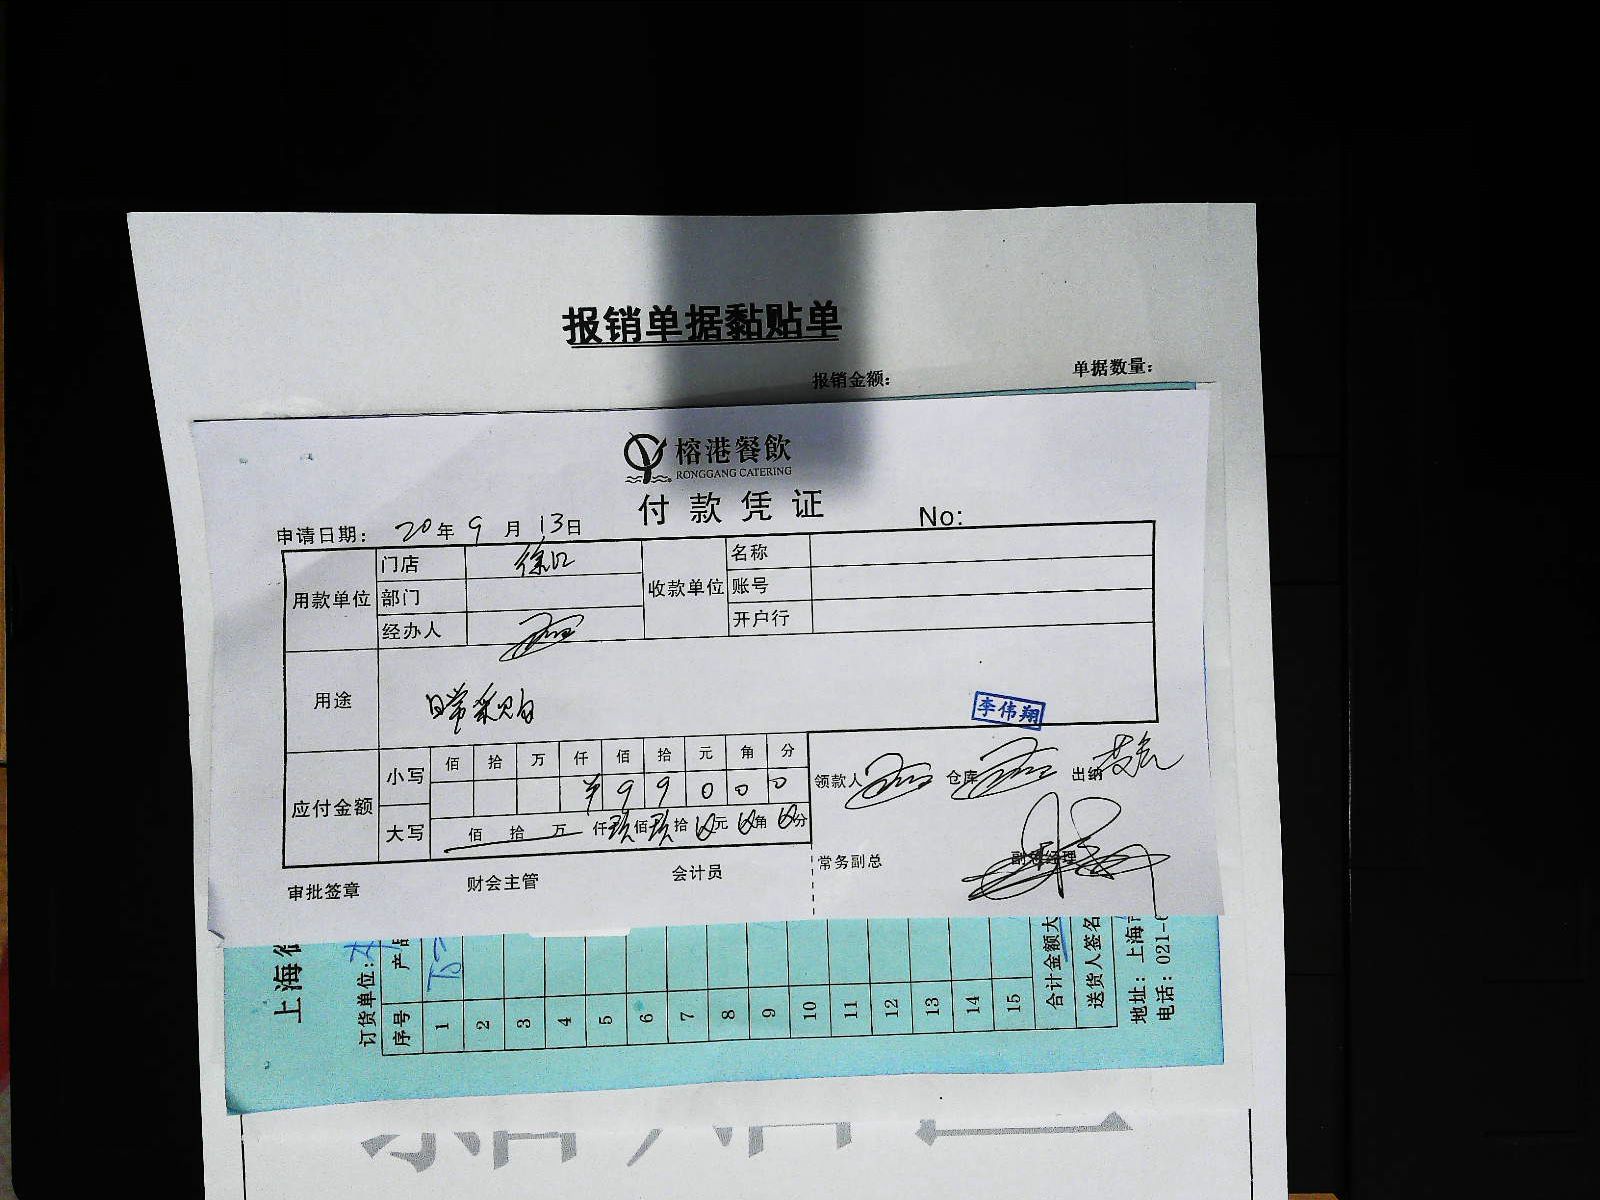 报销单据黏贴单
报销金额： 单据数量：
榕港餐飲
RONGGANG CATERING
付款凭证
申请日期： 20年 9 月 13日 No:
用款单位 门店 徐汇 收款单位 名称
部门 账号
经办人 开户行
用途 日常采购
李伟翔
应付金额 小写 佰 拾 万 仟 佰 拾 元 角 分
¥ 9 9 0 0 0
大写 佰 拾 万 仟玖佰玖拾 元 角 分
领款人 仓库 出纳
审批签章 财会主管 会计员 常务副总 副总经理
上海
订货单位：
序号 产品
1
2
3
4
5
6
7
8
9
10
11
12
13
14
15
合计金额大
送货人签名
地址：上海市
电话：021-6